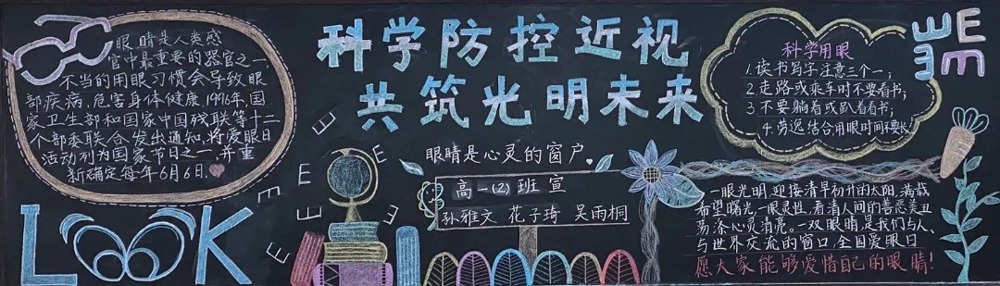 眼睛是人类感
官中最重要的器官之一
不当的用眼习惯会导致眼
部疾病,危害身体健康,1996年,国
家卫生部和国家中国残联等十二
个部委联合发出通知,将爱眼日
活动列为国家节日之一,并重
新确定每年6月6日。
LOOK
科学防控近视
共筑光明未来
眼睛是心灵的窗户。
高一(2)班 宣
孙雅文 花子琦 吴雨桐
E E E E E E
科学用眼
1.读书写字注意三个一;
2.走路或乘车时不要看书;
3.不要躺着或趴着看书;
4.劳逸结合用眼时间不要长
E E
一眼光明,迎接清早初升的太阳,满载
希望曙光,一眼灵性,看清人间的善恶美丑
荡涤心灵清亮。一双眼睛,是我们与人、
与世界交流的窗口,全国爱眼日
愿大家能够爱惜自己的眼睛!